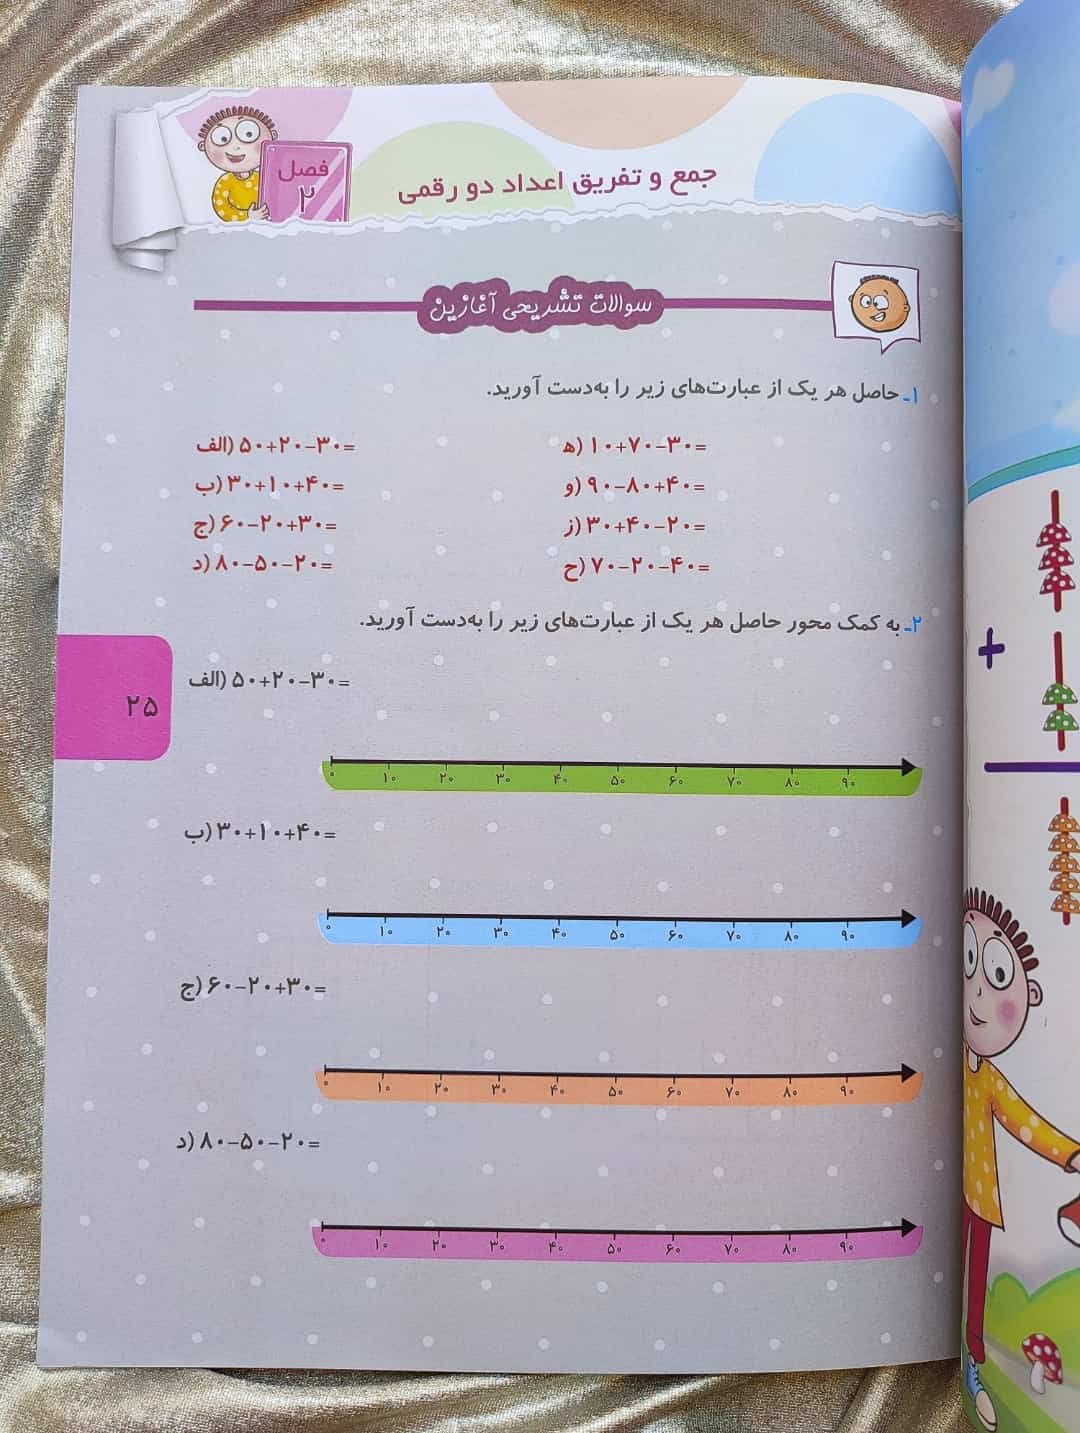 فصل
۲
جمع و تفریق اعداد دو رقمی
سوالات تشریحی آغازین
۱ـ حاصل هر یک از عبارت‌های زیر را به‌دست آورید.
الف) ۵۰+۲۰−۳۰=
ه) ۱۰+۷۰−۳۰=
ب) ۳۰+۱۰+۴۰=
و) ۹۰−۸۰+۴۰=
ج) ۶۰−۲۰+۳۰=
ز) ۳۰+۴۰−۲۰=
د) ۸۰−۵۰−۲۰=
ح) ۷۰−۲۰−۴۰=
۲ـ به کمک محور حاصل هر یک از عبارت‌های زیر را به‌دست آورید.
الف) ۵۰+۲۰−۳۰=
۲۵
۰ ۱۰ ۲۰ ۳۰ ۴۰ ۵۰ ۶۰ ۷۰ ۸۰ ۹۰
ب) ۳۰+۱۰+۴۰=
۰ ۱۰ ۲۰ ۳۰ ۴۰ ۵۰ ۶۰ ۷۰ ۸۰ ۹۰
ج) ۶۰−۲۰+۳۰=
۰ ۱۰ ۲۰ ۳۰ ۴۰ ۵۰ ۶۰ ۷۰ ۸۰ ۹۰
د) ۸۰−۵۰−۲۰=
۰ ۱۰ ۲۰ ۳۰ ۴۰ ۵۰ ۶۰ ۷۰ ۸۰ ۹۰
+